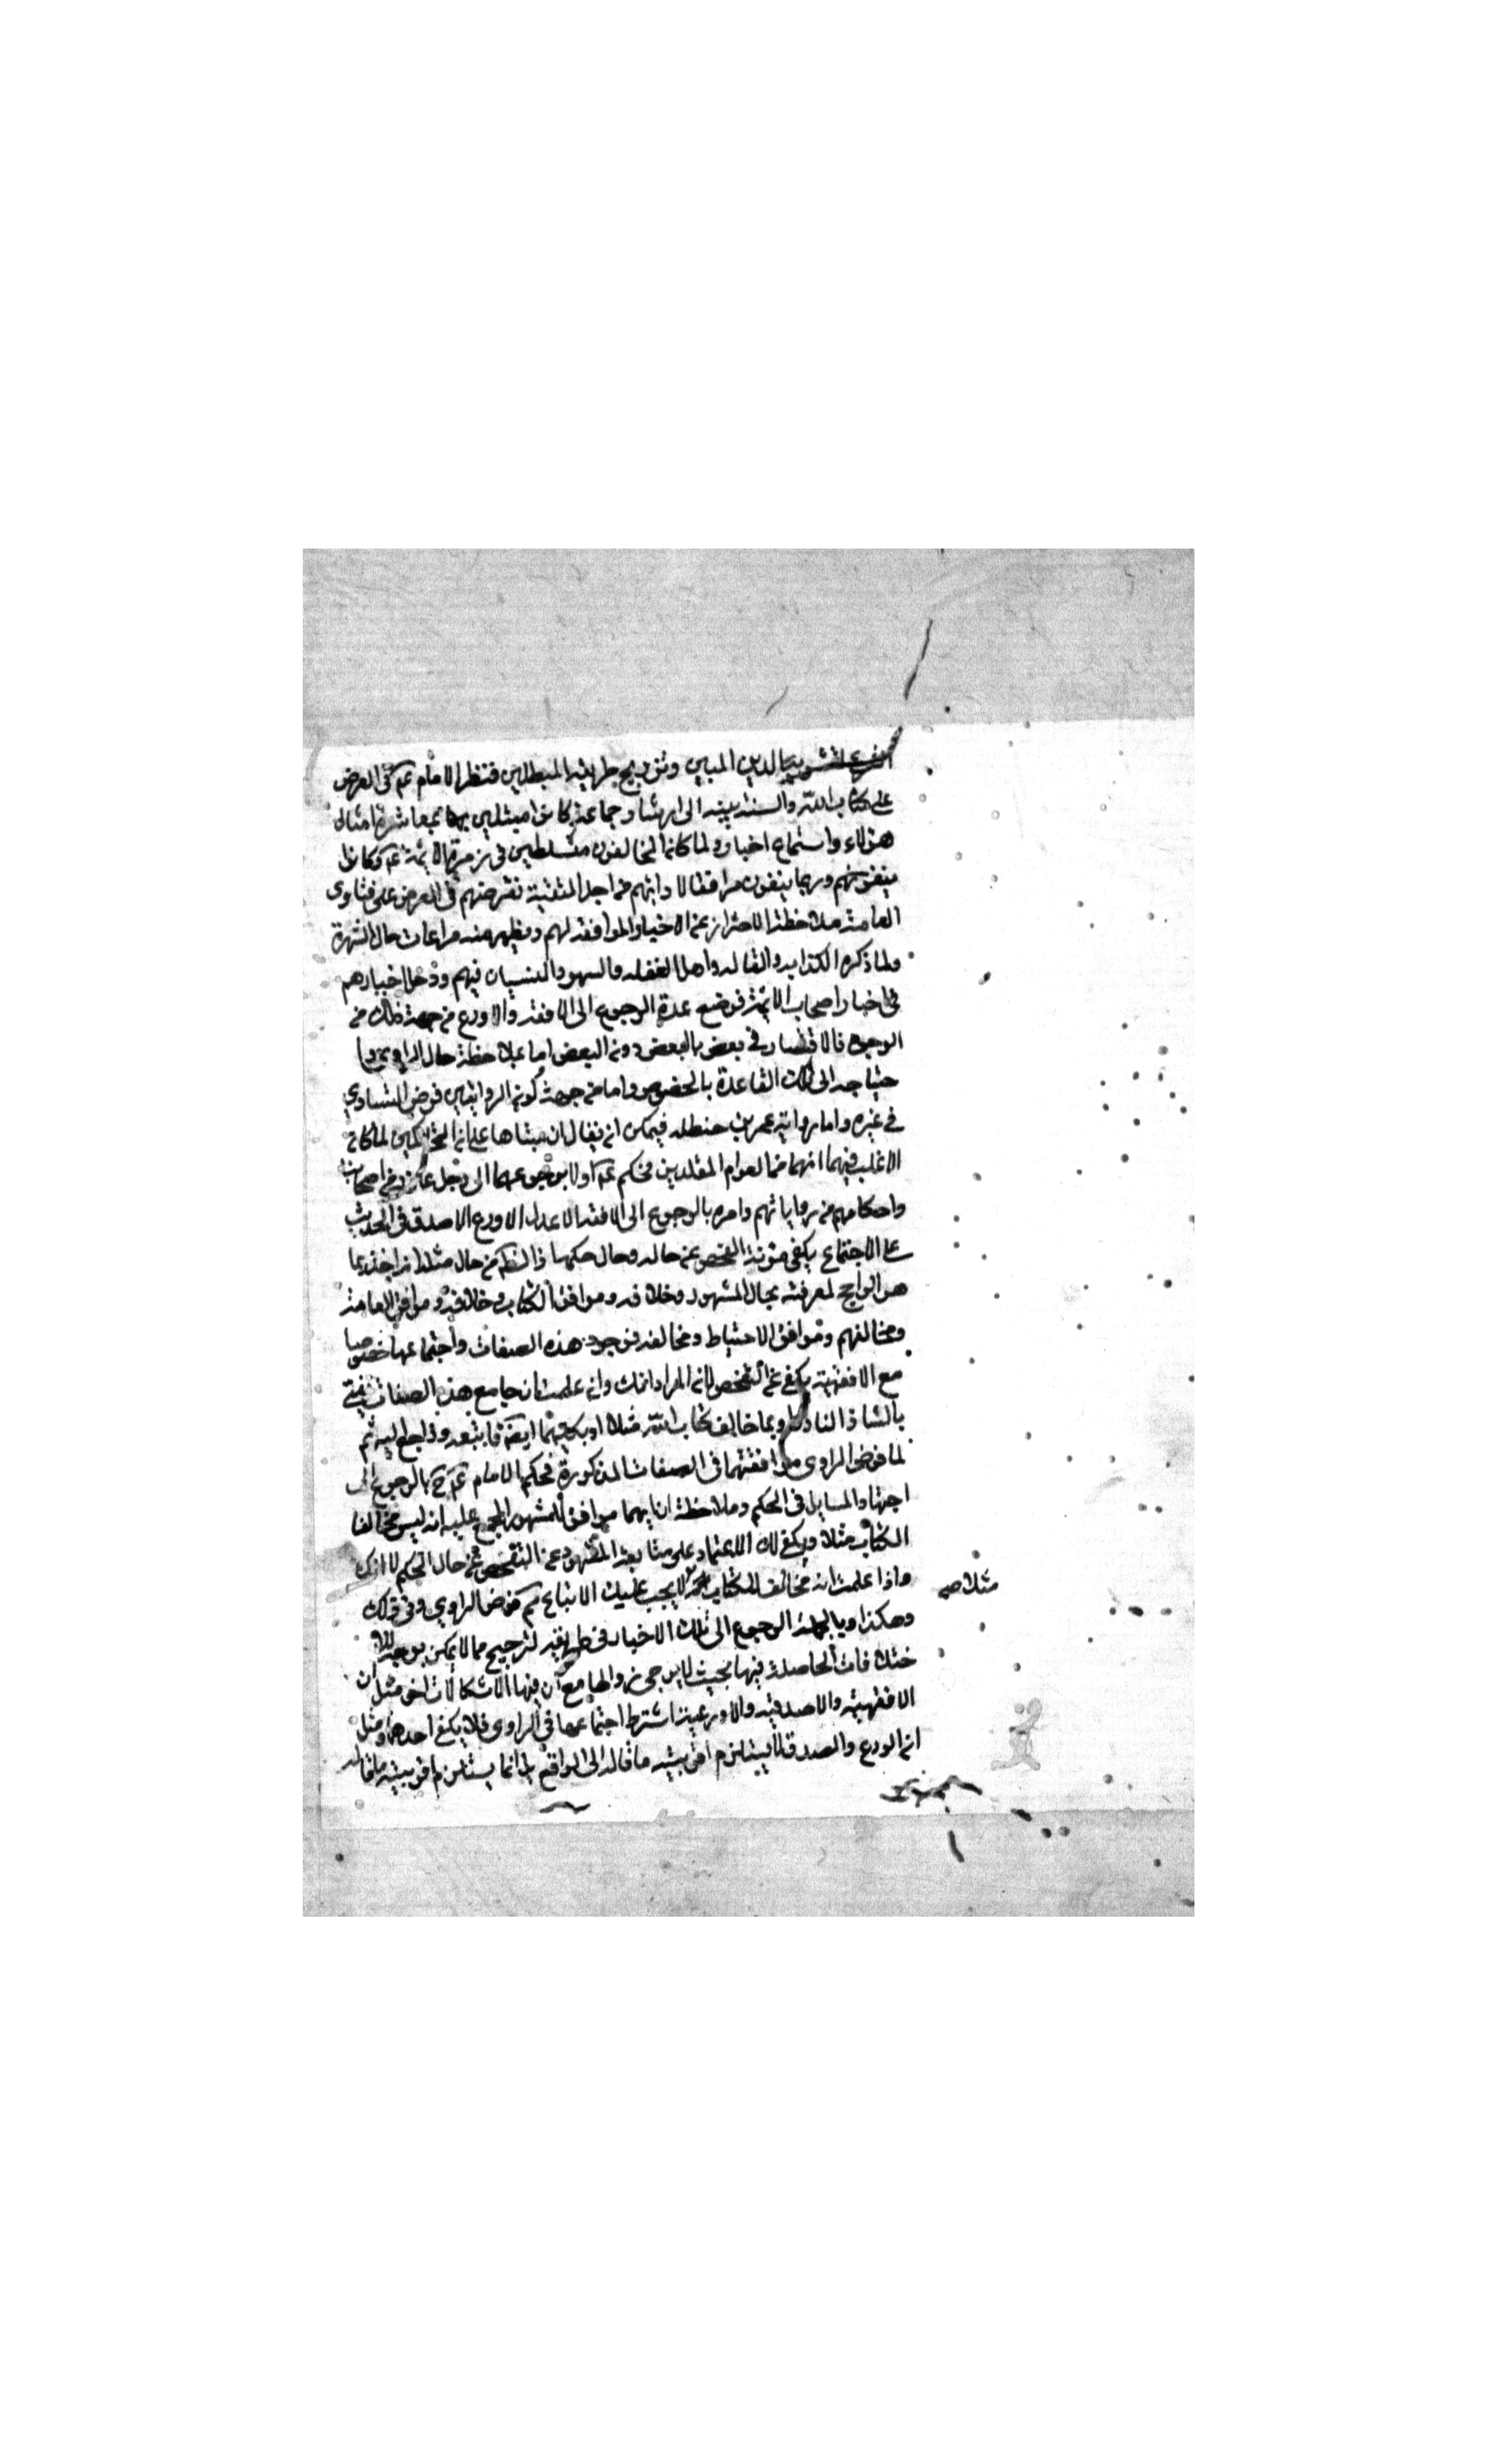 الدين المبين وترويج طريقة المبطلين فنظر الامام عم في العرض
على كتاب الله والسنة بينه الى ارتثا وجماعة كانوا مبتلين بمعاشرة امثال
هؤلاء واستماع اخبار ولما كان المخالفون متسلطين في زمن الائمة عم وكانوا
وربما يتفق من اجل التقية في العرض على فتاوى
العامة ملاحظة الاحتراز عن الاخبار الموافقة لهم ويظهر منه مراعات حال الشهرة
ولما ذكره الكذابه والقالة واهل الغفلة والسهو والنسيان فيهم ودخل اخبارهم
في اخبار اصحاب الائمة فوضع عدة الرجوع الى الافقه والاورع من جهة ذلك من
الوجوه فالاقتصار في بعض بالبعض دون البعض اما بملاحظة حال الراوي و
حتياجه الى تلك القاعدة بالخصوص واما من جهة كون الروايتين فرض التساوي
في غيره واما رواية عمر بن حنظله فيمكن ان يقال ان مبناها على ان المتحاكمين لما كان
الاغلب فيهما انهما من العوام المقلدين فحكم عم اولا برجوعهما الى رجل عارف من اصحابنا
واحكامهم من رواياتهم وامره بالرجوع الى الافقه الاعدل الاورع الاصدق في الحديث
على الاجتماع يكفي مؤنة الفحص عن حاله وحال حكمها اذ الظ من حال مثله انه اخذ بما
هو الراجح لمعرفته بحال المشهور وخلافه وموافق الكتاب وخلافه وموافق العامة
ومخالفهم وموافق الاحتياط ومخالفه فوجود هذه الصفات واجتماعها خصوصا
مع الافقهية يكفي عن الفحص لان المراد انك وان علمت ان جامع هذه الصفات يفتي
بالشاذ النادر او بما خالف كتاب الله مثلا او بكليهما ايضا فاتبعه وارجع اليه ثم
لما فرض الراوي موافقتهما في الصفات المذكورة فحكم الامام عم ح بالرجوع الى
اجتهاد المسايل في الحكم وملاحظة ان ايهما موافق للمشهور المجمع عليه انه ليس مخالفا
الكتاب مثلا ويكفي لك الاعتماد على متابعة المشهور عن التفحص عن حال الحكم لا انك
واذا علمت انه مخالف للكتاب لا يجب عليك الاتباع ثم فرض الراوي وفي قولك
مثلا صح
وهكذا وبالجملة الرجوع الى تلك الاخبار في طريقة الترجيح مما لا يمكن بوجه للا
ختلافات الحاصلة فيها بحيث لا يرجى زوالها مع ان فيها الاشكالات اخر مثل ان
الافقهية والاصدقية والاورعية اشترط اجتماعها في الراوي فلا يكفي احدها ومثل
ان الورع والصدق لا يستلزم اقربية ما قاله الى الواقع بل انما يستلزم اقربية ما قاله